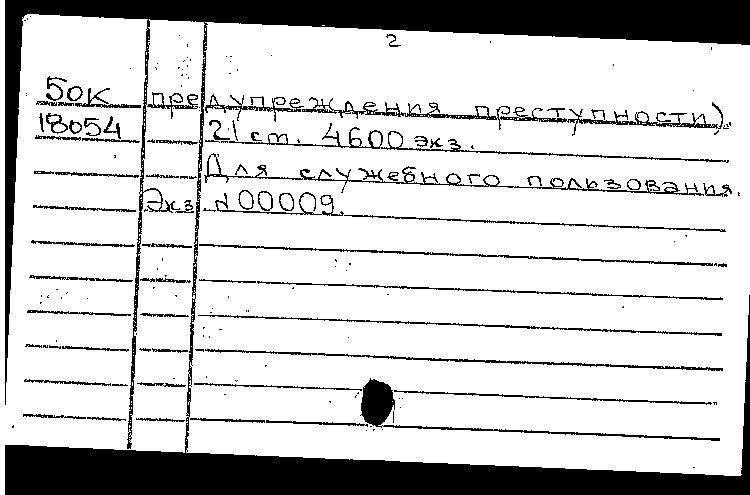 2
50к предупреждения преступности).
18054 21 ст. 4600 экз.
Для служебного пользования.
Экз. 00009.